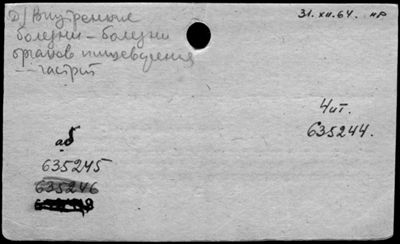 2) Внутренние
31.XII.64. нр
болезни – болезни
органов пищеварения
— гастрит
Чит.
635244.
аб
635245
635246